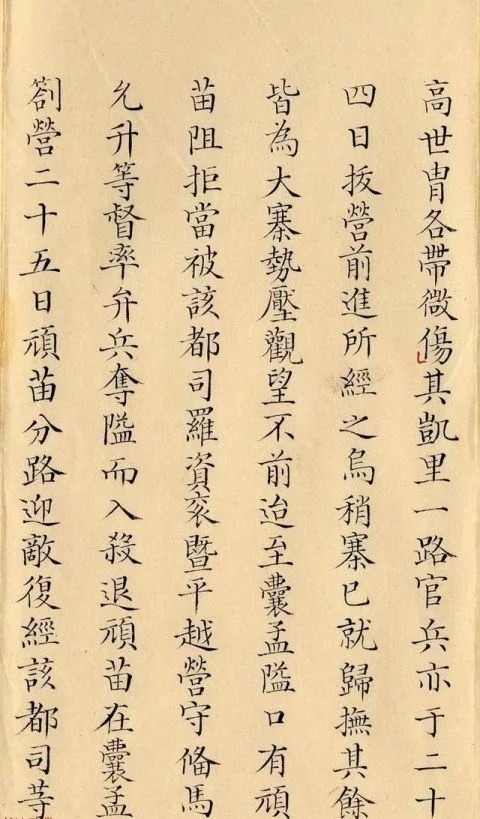 高世胄各帶微傷其凱里一路官兵亦于二十
四日拔營前進所經之烏稍寨已就歸撫其餘
皆為大寨勢壓觀望不前迨至囊孟隘口有頑
苗阻拒當被該都司羅資衮暨平越營守俻馬
允升等督率弁兵奪隘而入殺退頑苗在囊孟
劄營二十五日頑苗分路迎敵復經該都司等